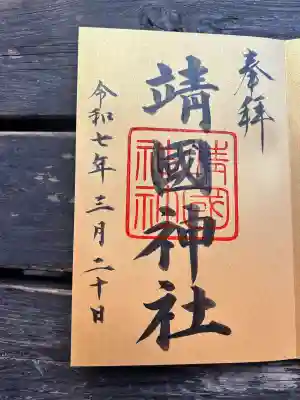 奉拝
靖國神社
靖國神社
令和七年三月二十日